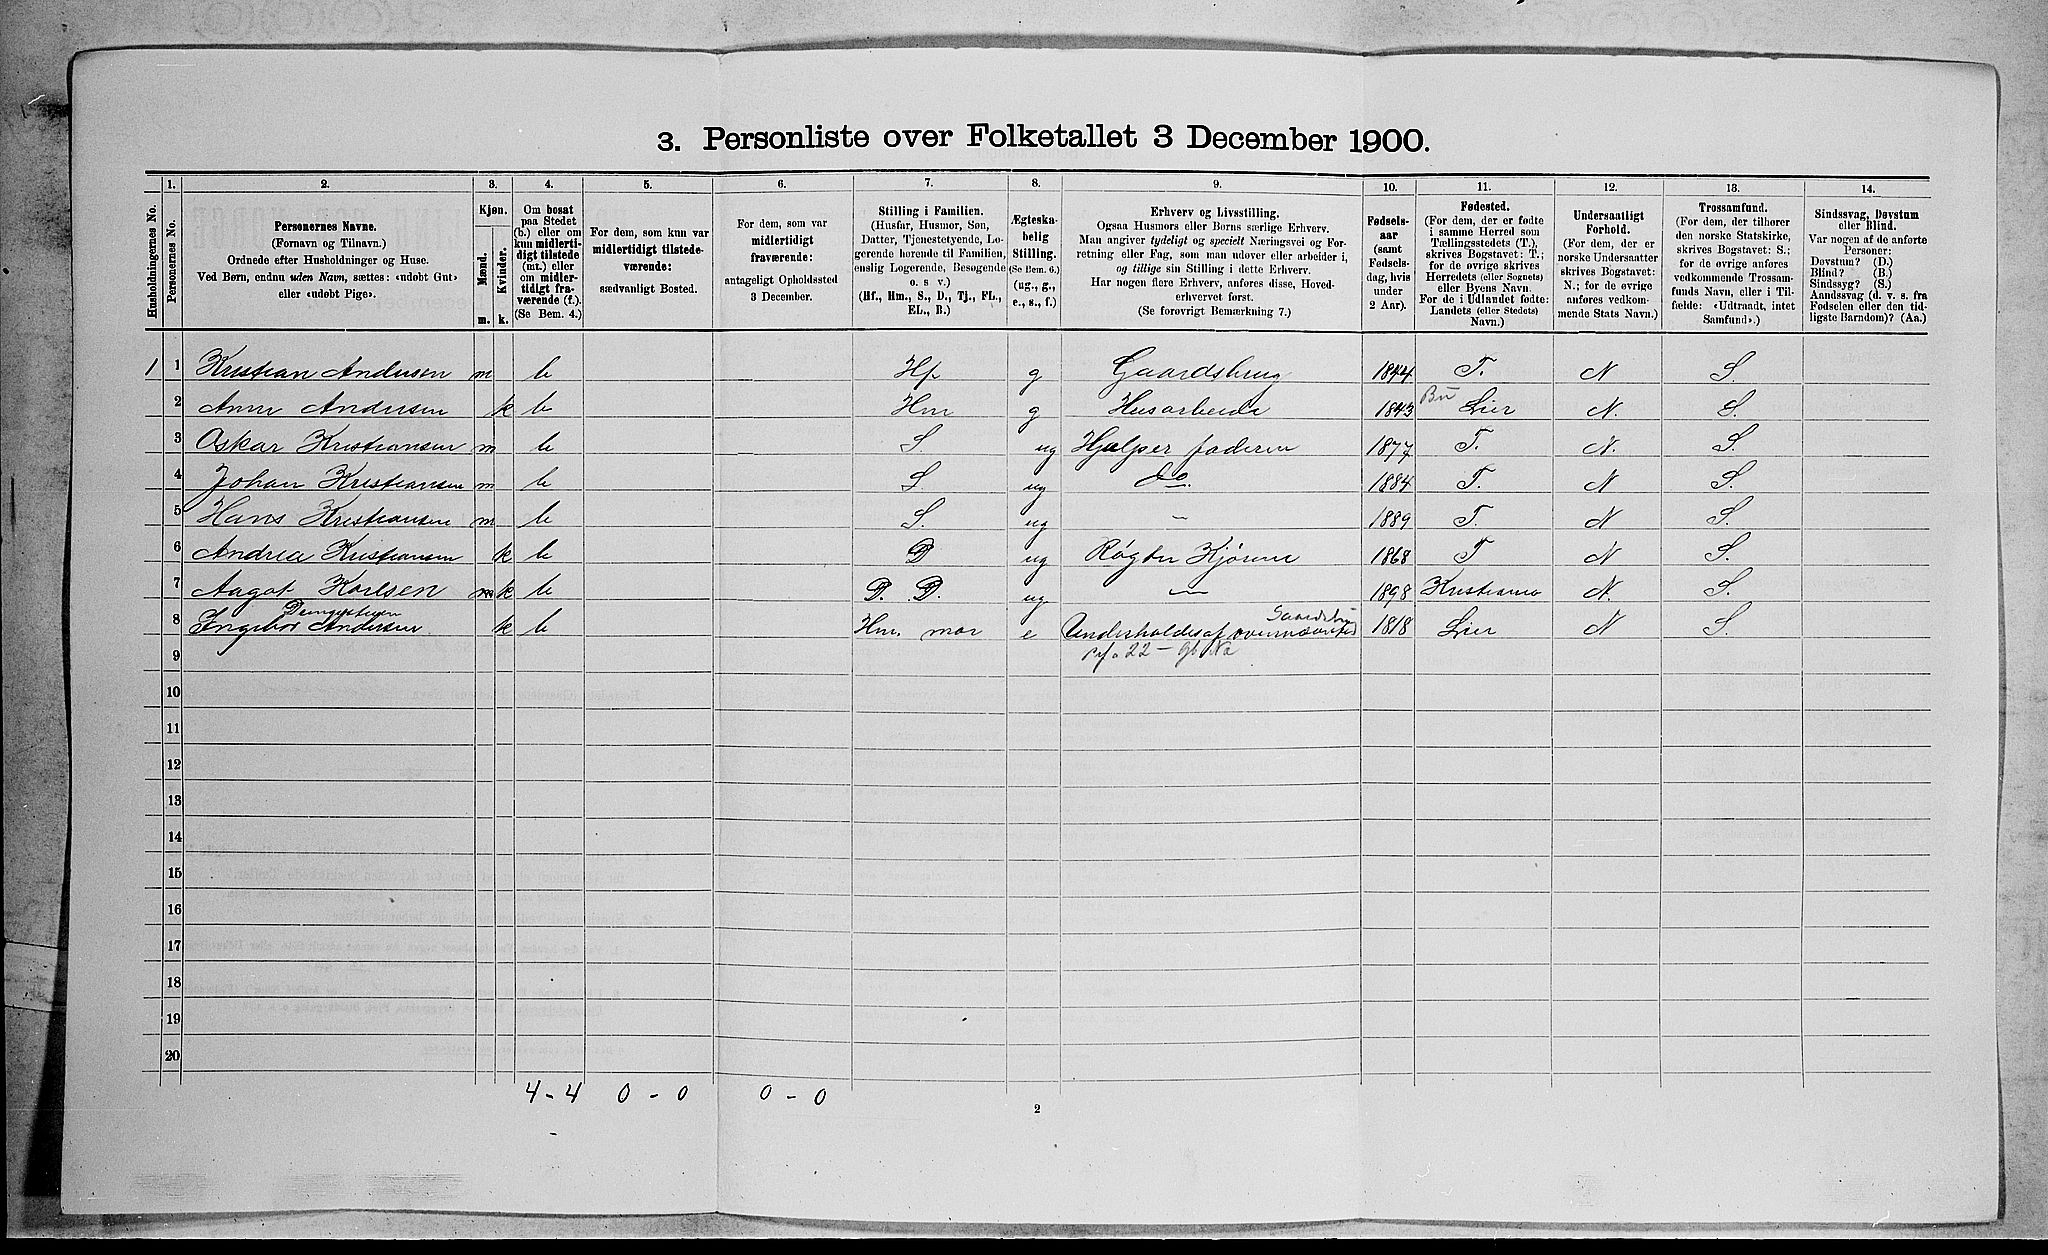 3. Personliste over Folketallet 3 December 1900.
Husholdningernes No.
1.
Personernes No.
2.
Personernes Navne.
(Fornavn og Tilnavn.)
Ordnede efter Husholdninger og Huse.
Ved Børn, endnu uden Navn, sættes: «udøbt Gut»
eller «udøbt Pige».
3.
Kjøn.
Mænd.
Kvinder.
m.
k.
4.
Om bosat
paa Stedet
(b.) eller om
kun midlerti-
digt tilstede
(mt.) eller
om midler-
tidigt fra-
værende (f.).
(Se Bem. 4.)
5.
For dem, som kun var
midlertidigt tilstede-
værende:
sædvanligt Bosted.
6.
For dem, som var
midlertidigt
fraværende:
antageligt Opholdssted
3 December.
7.
Stilling i Familien.
(Husfar, Husmor, Søn,
Datter, Tjenestetyende, Lo-
gerende hørende til Familien,
enslig Logerende, Besøgende
o. s v.)
(Hf., Hm., S., D., Tj., FL.,
EL., B.)
8.
Ægteska-
belig
Stilling.
(Se Bem. 6.)
(ug., g.,
e., s., f.)
9.
Erhverv og Livsstilling.
Ogsaa Husmors eller Børns særlige Erhverv.
Man angiver tydeligt og specielt Næringsvei og For-
retning eller Fag, som man udøver eller arbeider i,
og tillige sin Stilling i dette Erhverv.
Har nogen flere Erhverv, anføres disse, Hoved-
erhvervet først.
(Se forøvrigt Bemærkning 7.)
10.
Fødsels-
aar
(samt
Fødsels-
dag, hvis
under
2 Aar).
11.
Fødested.
(For dem, der er fødte
i samme Herred som
Tællingsstedets (T.),
skrives Bogstavet: T.;
for de øvrige skrives
Herredets (eller Sognets)
eller Byens Navn.
For de i Udlandet fødte:
Landets (eller Stedets)
Navn.)
12.
Undersaatligt
Forhold.
(For dem, der er
norske Undersaatter
skrives Bogstavet:
N.; for de øvrige
anføres vedkom-
mende Stats Navn.)
13.
Trossamfund.
(For dem, der tilhører
den norske Statskirke,
skrives Bogstavet: S.;
for de øvrige anføres
vedkommende Trossam-
funds Navn, eller i Til-
fælde: «Udtraadt, intet
Samfund».)
14.
Sindssvag, Døvstum
eller Blind.
Var nogen af de anførte
Personer:
Døvstum? (D.)
Blind? (B.)
Sindssyg? (S.)
Aandssvag (d. v. s. fra
Fødselen eller den tid-
ligste Barndom)? (Aa.)
1 1 Kristian Andersen m b Hf g Gaardsbrug 1844 T. N S.
2 Anne Andersen k b Hm g Husarbeide 1843 Lier N. S.
3 Oskar Kristiansen m b S. ug Hjælper faderen 1877 T. N. S.
4 Johan Kristiansen m b S. ug do. 1884 T. N S.
5 Hans Kristiansen m b S. ug — 1889 T. N S.
6 Andrea Kristiansen k b D ug Røgter Kjørene 1868 T N S.
7 Aagot Karlsen m k b D. D. ug — 1898 Kristiania N. S.
8 Ingebor Andersen k b Hm. mor e Underholdes af 1818 Lier N S.
9
10
11
12
13
14
15
16
17
18
19
20
4 - 4 0 - 0 0 - 0
2